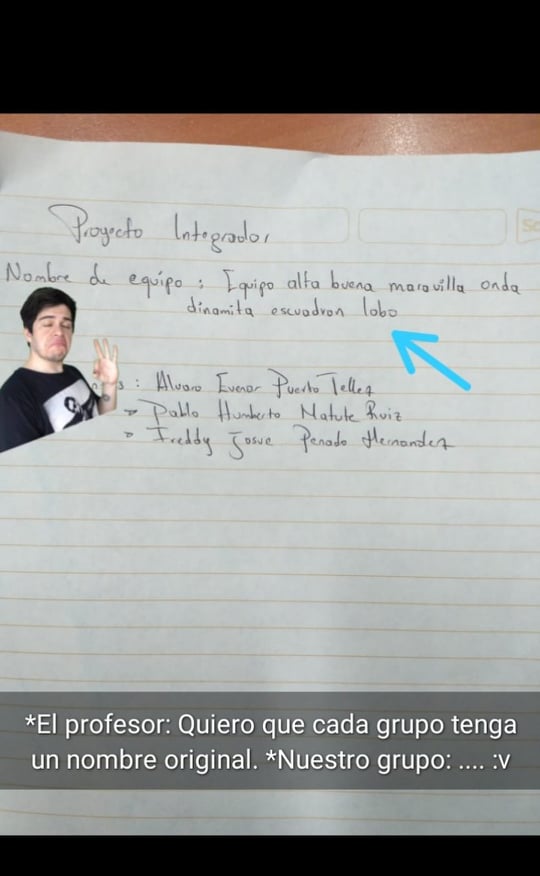 Proyecto Integrador
Nombre de equipo : Equipo alfa buena maravilla onda
dinamita escuadron lobo
s : Alvaro Evenor Puerto Tellez
→ Pablo Humberto Matute Ruiz
→ Freddy Josue Penado Hernandez
*El profesor: Quiero que cada grupo tenga
un nombre original. *Nuestro grupo: .... :v